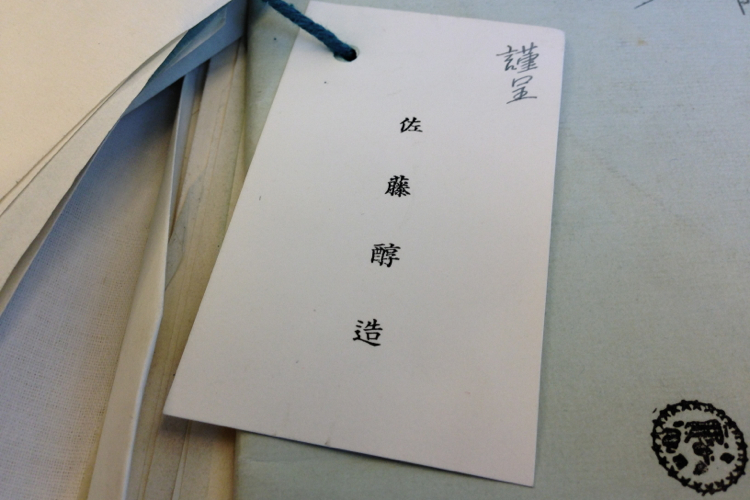 謹呈
佐藤醇造